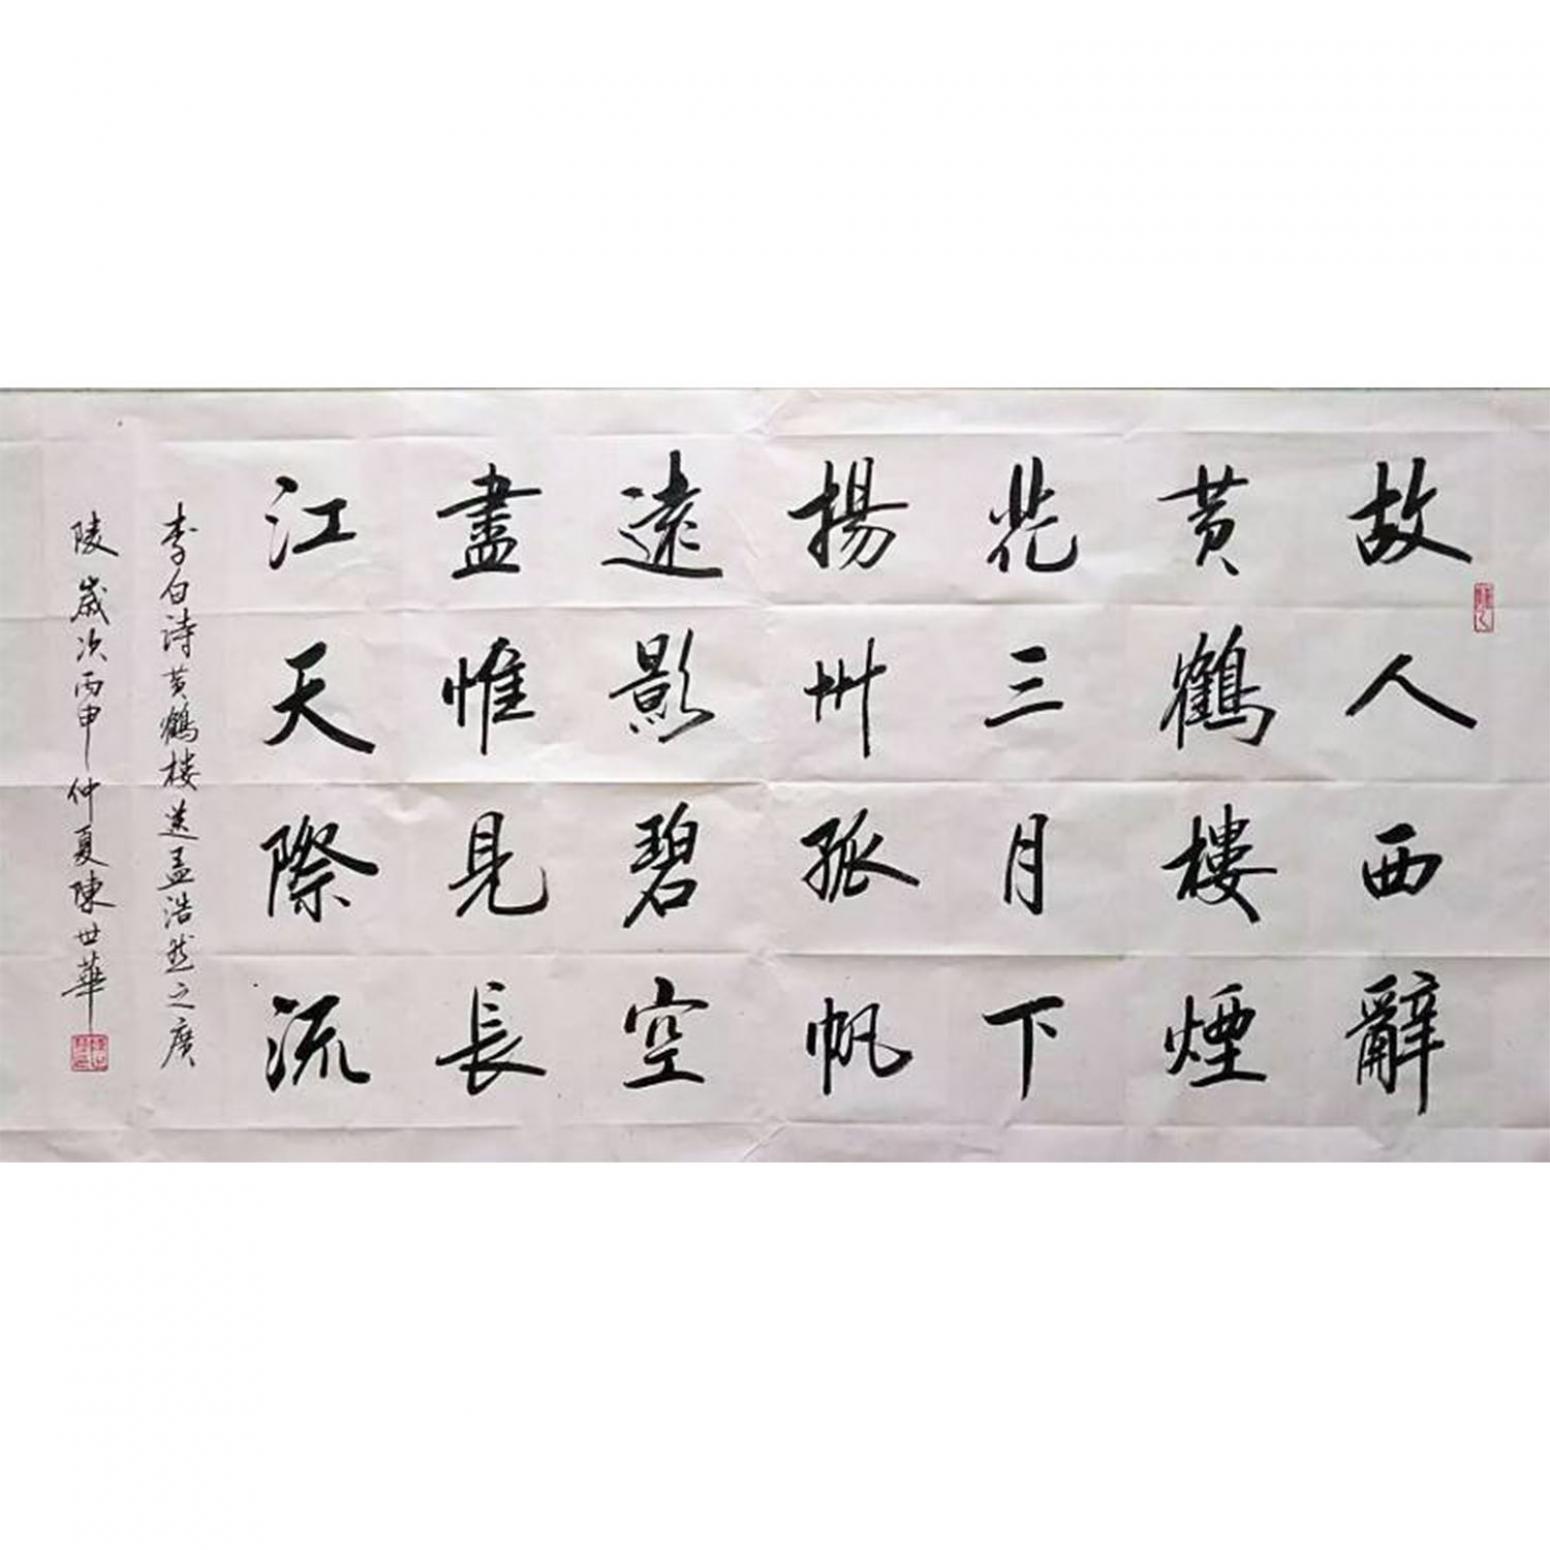 故人西辭
黃鶴樓煙
花三月下
揚州孤帆
遠影碧空
盡惟見長
江天際流
李白詩黃鶴樓送孟浩然之廣
陵歲次丙申仲夏陳世華